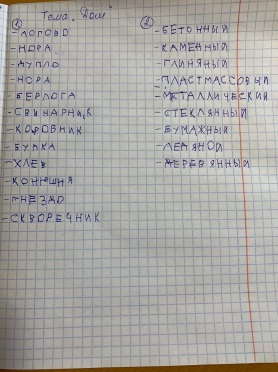 Тема „Дом"
①
-ЛОГОВО
-НОРА
-ДУПЛО
-НОРА
-БЕРЛОГА
-СВИНАРНИК
-КОРОВНИК
-БУДКА
-ХЛЕВ
-КОНЮШНЯ
-ГНЕЗДО
-СКВОРЕЧНИК
②
-БЕТОННЫЙ
-КАМЕННЫЙ
-ГЛИНЯНЫЙ
-ПЛАСТМАССОВЫЙ
-МЕТАЛЛИЧЕСКИЙ
-СТЕКЛЯННЫЙ
-БУМАЖНЫЙ
-ЛЕДЯНОЙ
-ДЕРЕВЯННЫЙ